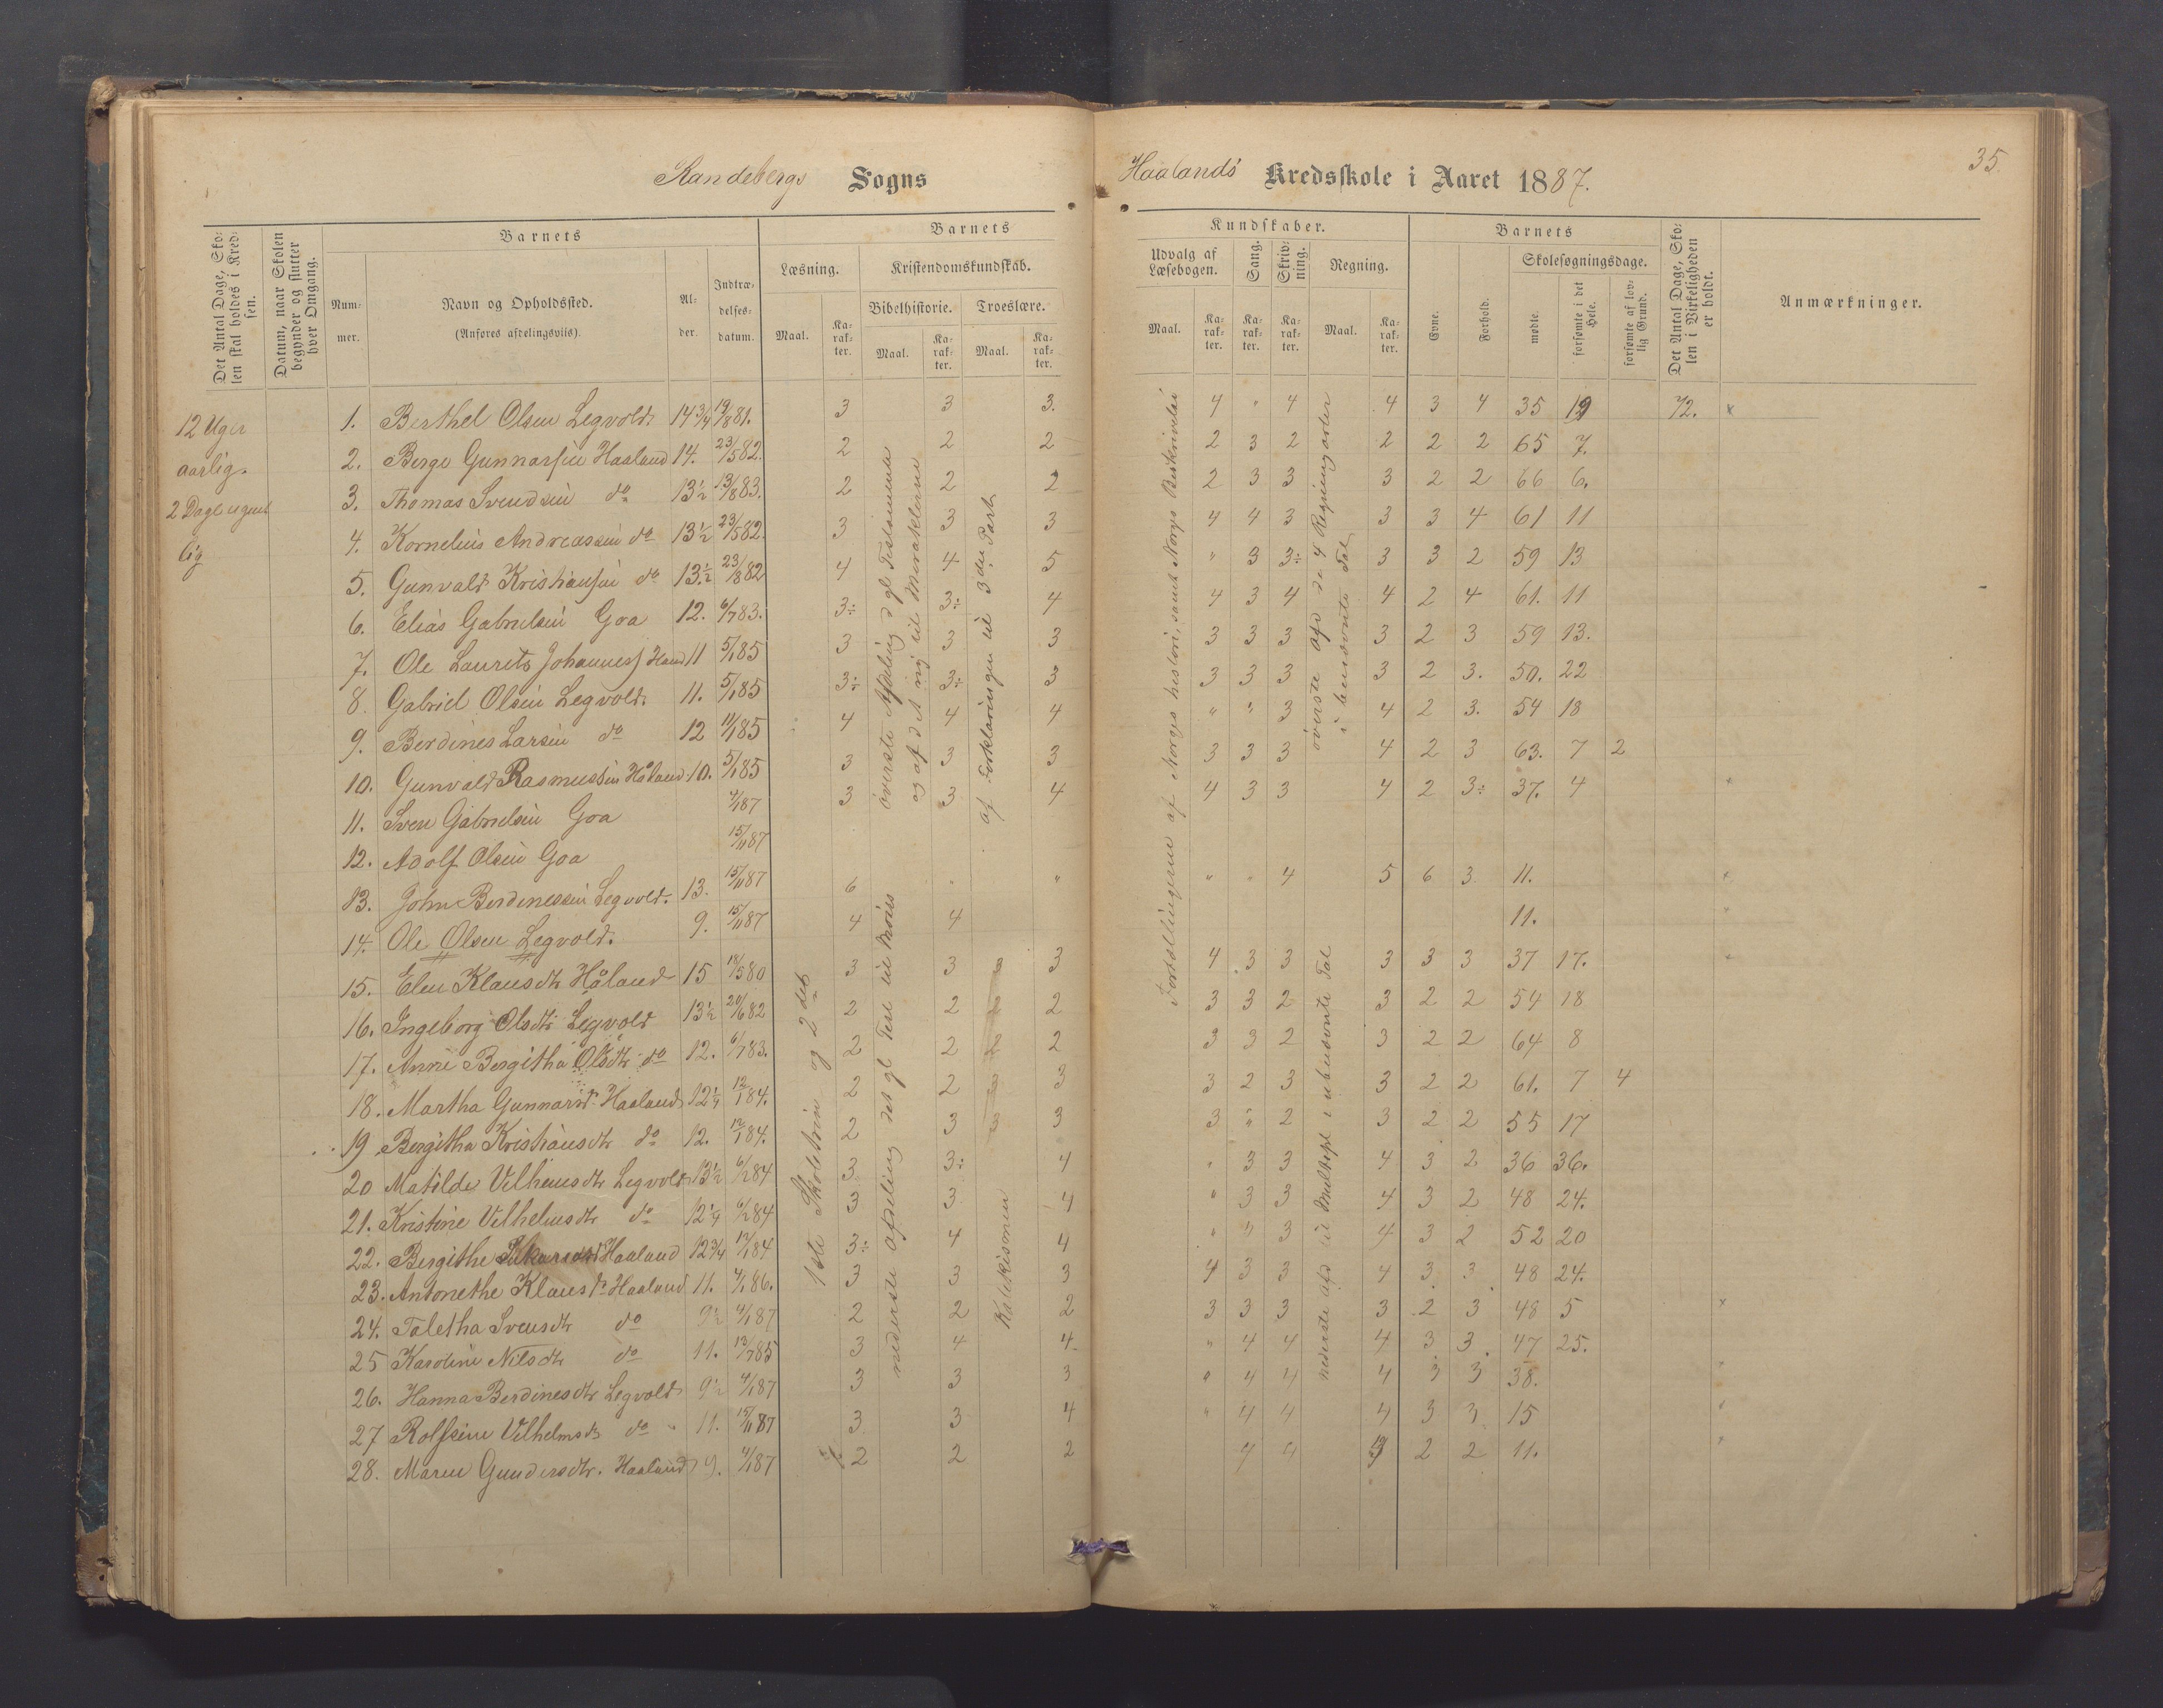 Randebergs Sogns
Haalands Kredsskole i Aaret 1887.
35
Det Antal Dage, Skolen skal holdes i Kredsen.
Datum, naar Skolen begynder og slutter hver Omgang.
Barnets
Nummer.
Navn og Opholdssted.
(Anføres afdelingsvis).
Alder.
Indtrædelsesdatum.
Barnets
Læsning.
Maal.
Karakter.
Kristendomskundskab.
Bibelhistorie.
Maal.
Karakter.
Troeslære.
Maal.
Karakter.
Kundskaber.
Udvalg af Læsebogen.
Maal.
Karakter.
Sang.
Karakter.
Skrivning.
Karakter.
Regning.
Maal.
Karakter.
Barnets
Evne.
Forhold.
Skolesøgningsdage.
mødte.
forsømte i det Hele.
forsømte af lovlig Grund.
Det Antal Dage, Skolen i Virkeligheden er holdt.
Anmærkninger.
12 Uger
aarlig.
2 Dage ugent
lig
1. Berthel Olsen Legvold. 14 3/4 19/8 81. 3 3 3. 4 " 4 4 3 4 35 19 72. x
2. Berge Gunnarsen Haaland 14. 23/5 82. 2 2 2 2 3 2 2 2 2 65 7.
3. Thomas Svendsen do 13 1/2 13/8 83. 2 2 2 2 3 3 3 2 2 66 6.
4. Kornelius Andreassen do 13 1/2 23/5 82. 3 3 3 4 4 3 3 3 4 61 11
5. Gunvald Kristiansen do 13 1/2 23/8 82 4 4 5 " 3 3÷ 3 3 2 59 13
6. Elias Gabrielsen Goa 12. 6/7 83. 3÷ 3÷ 4 4 3 4 4 2 4 61. 11
7. Ole Laurits Johanness Haaland 11 5/1 85 3 3 3 3 3 3 3 2 3 59 13.
8. Gabriel Olsen Legvold. 11. 5/1 85 3÷ 3÷ 3 3 3 3 3 2 3. 50. 22
9. Berdines Larsen do 12 11/1 85 4 4 4 " " 3 4 2 3. 54 18
10. Gunvald Rasmussen Håland 10. 5/1 85 3 3 3 3 3 3 4 2 3 63. 7 2
11. Sven Gabrielsen Goa 4/1 87 3 3 4 4 3 3 4 2 3÷ 37. 4
12. Adolf Olsen Goa 15/11 87
13. John Berdinessen Legvold. 13. 15/11 87 6 " " " " 4 5 6 3. 11.
14. Ole Olsen Legvold. 9. 15/11 87 4 4 11.
15. Elen Klausdtr Håland 15 18/5 80 3 3 3 4 3 3 3 3 3 37 17.
16. Ingeborg Olsdtr Legvold 13 1/2 20/6 82 2 2 2 3 3 2 3 2 2 54 18
17. Anne Bergitha Olsdtr do 12. 6/7 83. 2 2 2 3 3 2 3 2 2 64 8
18. Martha Gunnarsdr Haaland 12 1/4 12/1 84. 2 2 3 3 2 3 3 2 2 61. 7 4
19 Bergitha Kristiansdtr do 12. 12/1 84. 2 3 3 3 " 2 3 2 2 55 17
20 Matilde Vilhemsdtr Legvold 13 1/2 6/2 84 3 3÷ 4 " 3 3 4 3 2 36 36.
21. Kristine Vilhelmsdtr do 12 1/4 6/2 84 3 3 4 " 3 3 4 3 2 48 24.
22. Bergithe Haaland 12 3/4 12/1 84 3÷ 4 4 " " 3 4 3 2 52 20
23. Antonethe Klausdr Haaland 11. 4/1 86. 3 3 3 4 3 3 4 3 3 48 24.
24. Taletha Svensdtr do 9 1/2 4/1 87 2 2 2 3 3 3 3 2 3 48 5 x
25 Karoline Nilsdtr do 11. 12/7 85 3 4 4 " 4 4 4 3 3 47 25.
26. Hanna Berdinesdtr Legvold 9 1/2 4/1 87 3 3 3 " 4 4 4 3 3 38.
27 Rolfsine Vilhelmsdtr do 11. 15/11 87 3 3 4 " 4 4 4 3 3 15
28. Maren Gundersdtr. Haaland 9. 4/1 87 2 2 2 4 4 2 2 11.
1ste Skoletrin og 2det
øverste Afdeling d gl Testamente
og af d N nij til Miraklerne
nederste afdeling det gl Test til Moses
af Forklaringen til 3die Part
Katekismen
Fortællingerne af Norges historie, samt Norges Beskrivelse
øverste afd de 4 Regningsarter
i benævnte Tal
nederste afd til Multipl i ubenævnte Tal